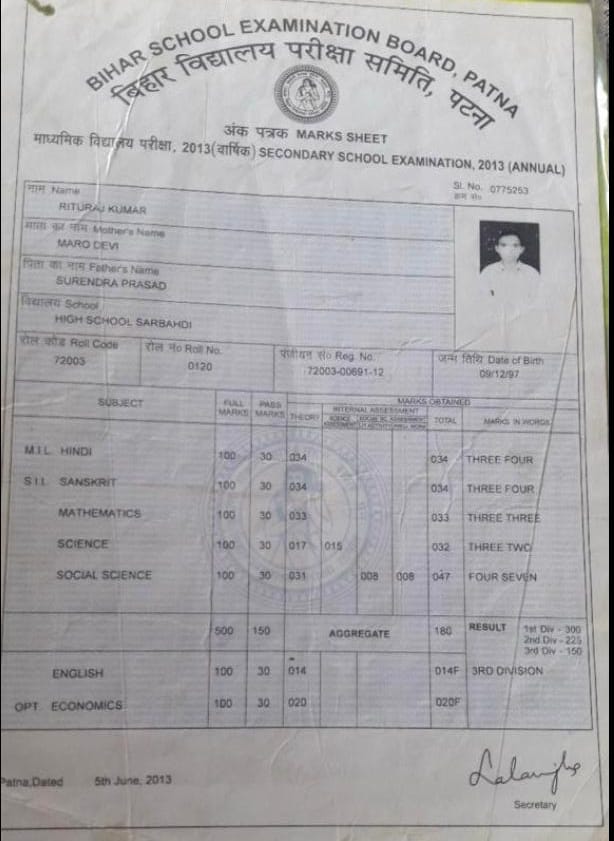 BIHAR SCHOOL EXAMINATION BOARD, PATNA
बिहार विद्यालय परीक्षा समिति, पटना
अंक पत्रक MARKS SHEET
माध्यमिक विद्यालय परीक्षा, 2013(वार्षिक) SECONDARY SCHOOL EXAMINATION, 2013 (ANNUAL)
Sl. No. 0775253
क्रम सं०
नाम Name
RITURAJ KUMAR
माता का नाम Mother's Name
MARO DEVI
पिता का नाम Father's Name
SURENDRA PRASAD
विद्यालय School
HIGH SCHOOL SARBAHDI
रोल कोड Roll Code रोल नं० Roll No. पंजीयन सं० Reg. No. जन्म तिथि Date of Birth
72003 0120 72003-00691-12 09/12/97
SUBJECT FULL MARKS PASS MARKS THEORY MARKS OBTAINED
INTERNAL ASSESSMENT TOTAL MARKS IN WORDS
M.I.L. HINDI 100 30 034 034 THREE FOUR
S.I.L. SANSKRIT 100 30 034 034 THREE FOUR
MATHEMATICS 100 30 033 033 THREE THREE
SCIENCE 100 30 017 015 032 THREE TWO
SOCIAL SCIENCE 100 30 031 008 008 047 FOUR SEVEN
500 150 AGGREGATE 180 RESULT 1st Div - 300
2nd Div - 225
3rd Div - 150
ENGLISH 100 30 014 014F 3RD DIVISION
OPT. ECONOMICS 100 30 020 020F
Patna,Dated 5th June, 2013
Secretary